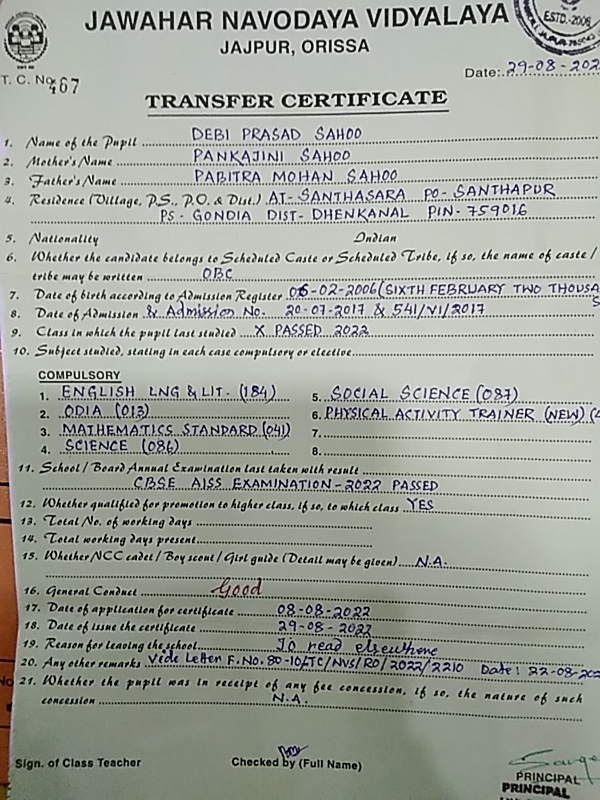 JAWAHAR NAVODAYA VIDYALAYA
JAJPUR, ORISSA
ESTD.-2006
T. C. No. 467
Date: 29-08-202
TRANSFER CERTIFICATE
1. Name of the Pupil DEBI PRASAD SAHOO
2. Mother's Name PANKAJINI SAHOO
3. Father's Name PABITRA MOHAN SAHOO
4. Residence (Village, P.S., P.O. & Dist.) AT- SANTHASARA PO- SANTHAPUR
PS- GONDIA DIST- DHENKANAL PIN- 759016
5. Nationality Indian
6. Whether the candidate belongs to Scheduled Caste or Scheduled Tribe, if so, the name of caste /
tribe may be written OBC
7. Date of birth according to Admission Register 06-02-2006 (SIXTH FEBRUARY TWO THOUSA
S
8. Date of Admission & Admission No. 20-07-2017 & 541/VI/2017
9. Class in which the pupil last studied X PASSED 2022
10. Subject studied, stating in each case compulsory or elective
COMPULSORY
1. ENGLISH LNG & LIT. (184)
2. ODIA (013)
3. MATHEMATICS STANDARD (041)
4. SCIENCE (086)
5. SOCIAL SCIENCE (087)
6. PHYSICAL ACTIVITY TRAINER (NEW) (4
7.
8.
11. School / Board Annual Examination last taken with result
CBSE AISS EXAMINATION-2022 PASSED
12. Whether qualified for promotion to higher class, if so, to which class YES
13. Total No. of working days
14. Total working days present
15. Whether NCC cadet / Boy scout / Girl guide (Detail may be given) N.A.
16. General Conduct Good
17. Date of application for certificate 08-08-2022
18. Date of issue the certificate 29-08-2022
19. Reason for leaving the school To read elsewhere
20. Any other remarks Vide Letter F.No. 80-10/TC/NVS/RO/2022/2210 Date: 22-08-202
21. Whether the pupil was in receipt of any fee concession, if so, the nature of such
concession N.A.
Sign. of Class Teacher
Checked by (Full Name)
PRINCIPAL
PRINCIPAL